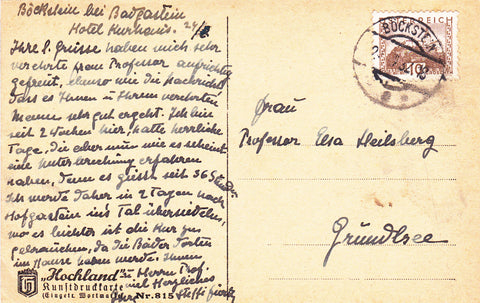 Böckstein bei Badgastein
Hotel Kurhaus. 24/8.
Ihre l. Grüsse haben mich sehr
verehrte Frau Professor aufrichtig
gefreut, ebenso wie die Nachricht
dass es Ihnen u Ihrem verehrten
Manne sehr gut ergeht. Ich bin
seit 2 Wochen hier, hatte herrliche
Tage, die aber nun wie es scheint
eine Unterbrechung erfahren
haben, denn es giesst seit 36 Stunden
Ich werde daher in 2 Tagen nach
Hofgastein ins Tal übersiedeln,
wo es leichter ist die Kur zu
gebrauchen, da die Bäder dorten
im Hause haben werde. Ihnen
u Herrn Prof.
viel Herzliches
Ihre Steffi
"Hochland"
Kunstdruckkarte
(Eingetr. Wortmarke)
Nr. 815
ÖSTERREICH
BÖCKSTEIN
10
Frau
Professor Elsa Heilsberg
Gründlsee